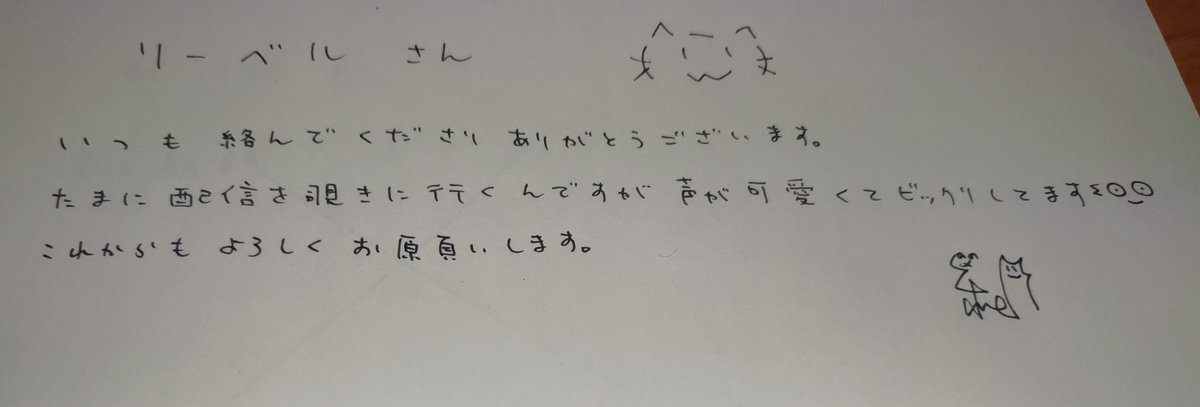 リーベル さん
いつも絡んでくださりありがとうございます。
たまに配信を覗きに行くんですが声が可愛くてビックリしてます
これからもよろしくお願いします。